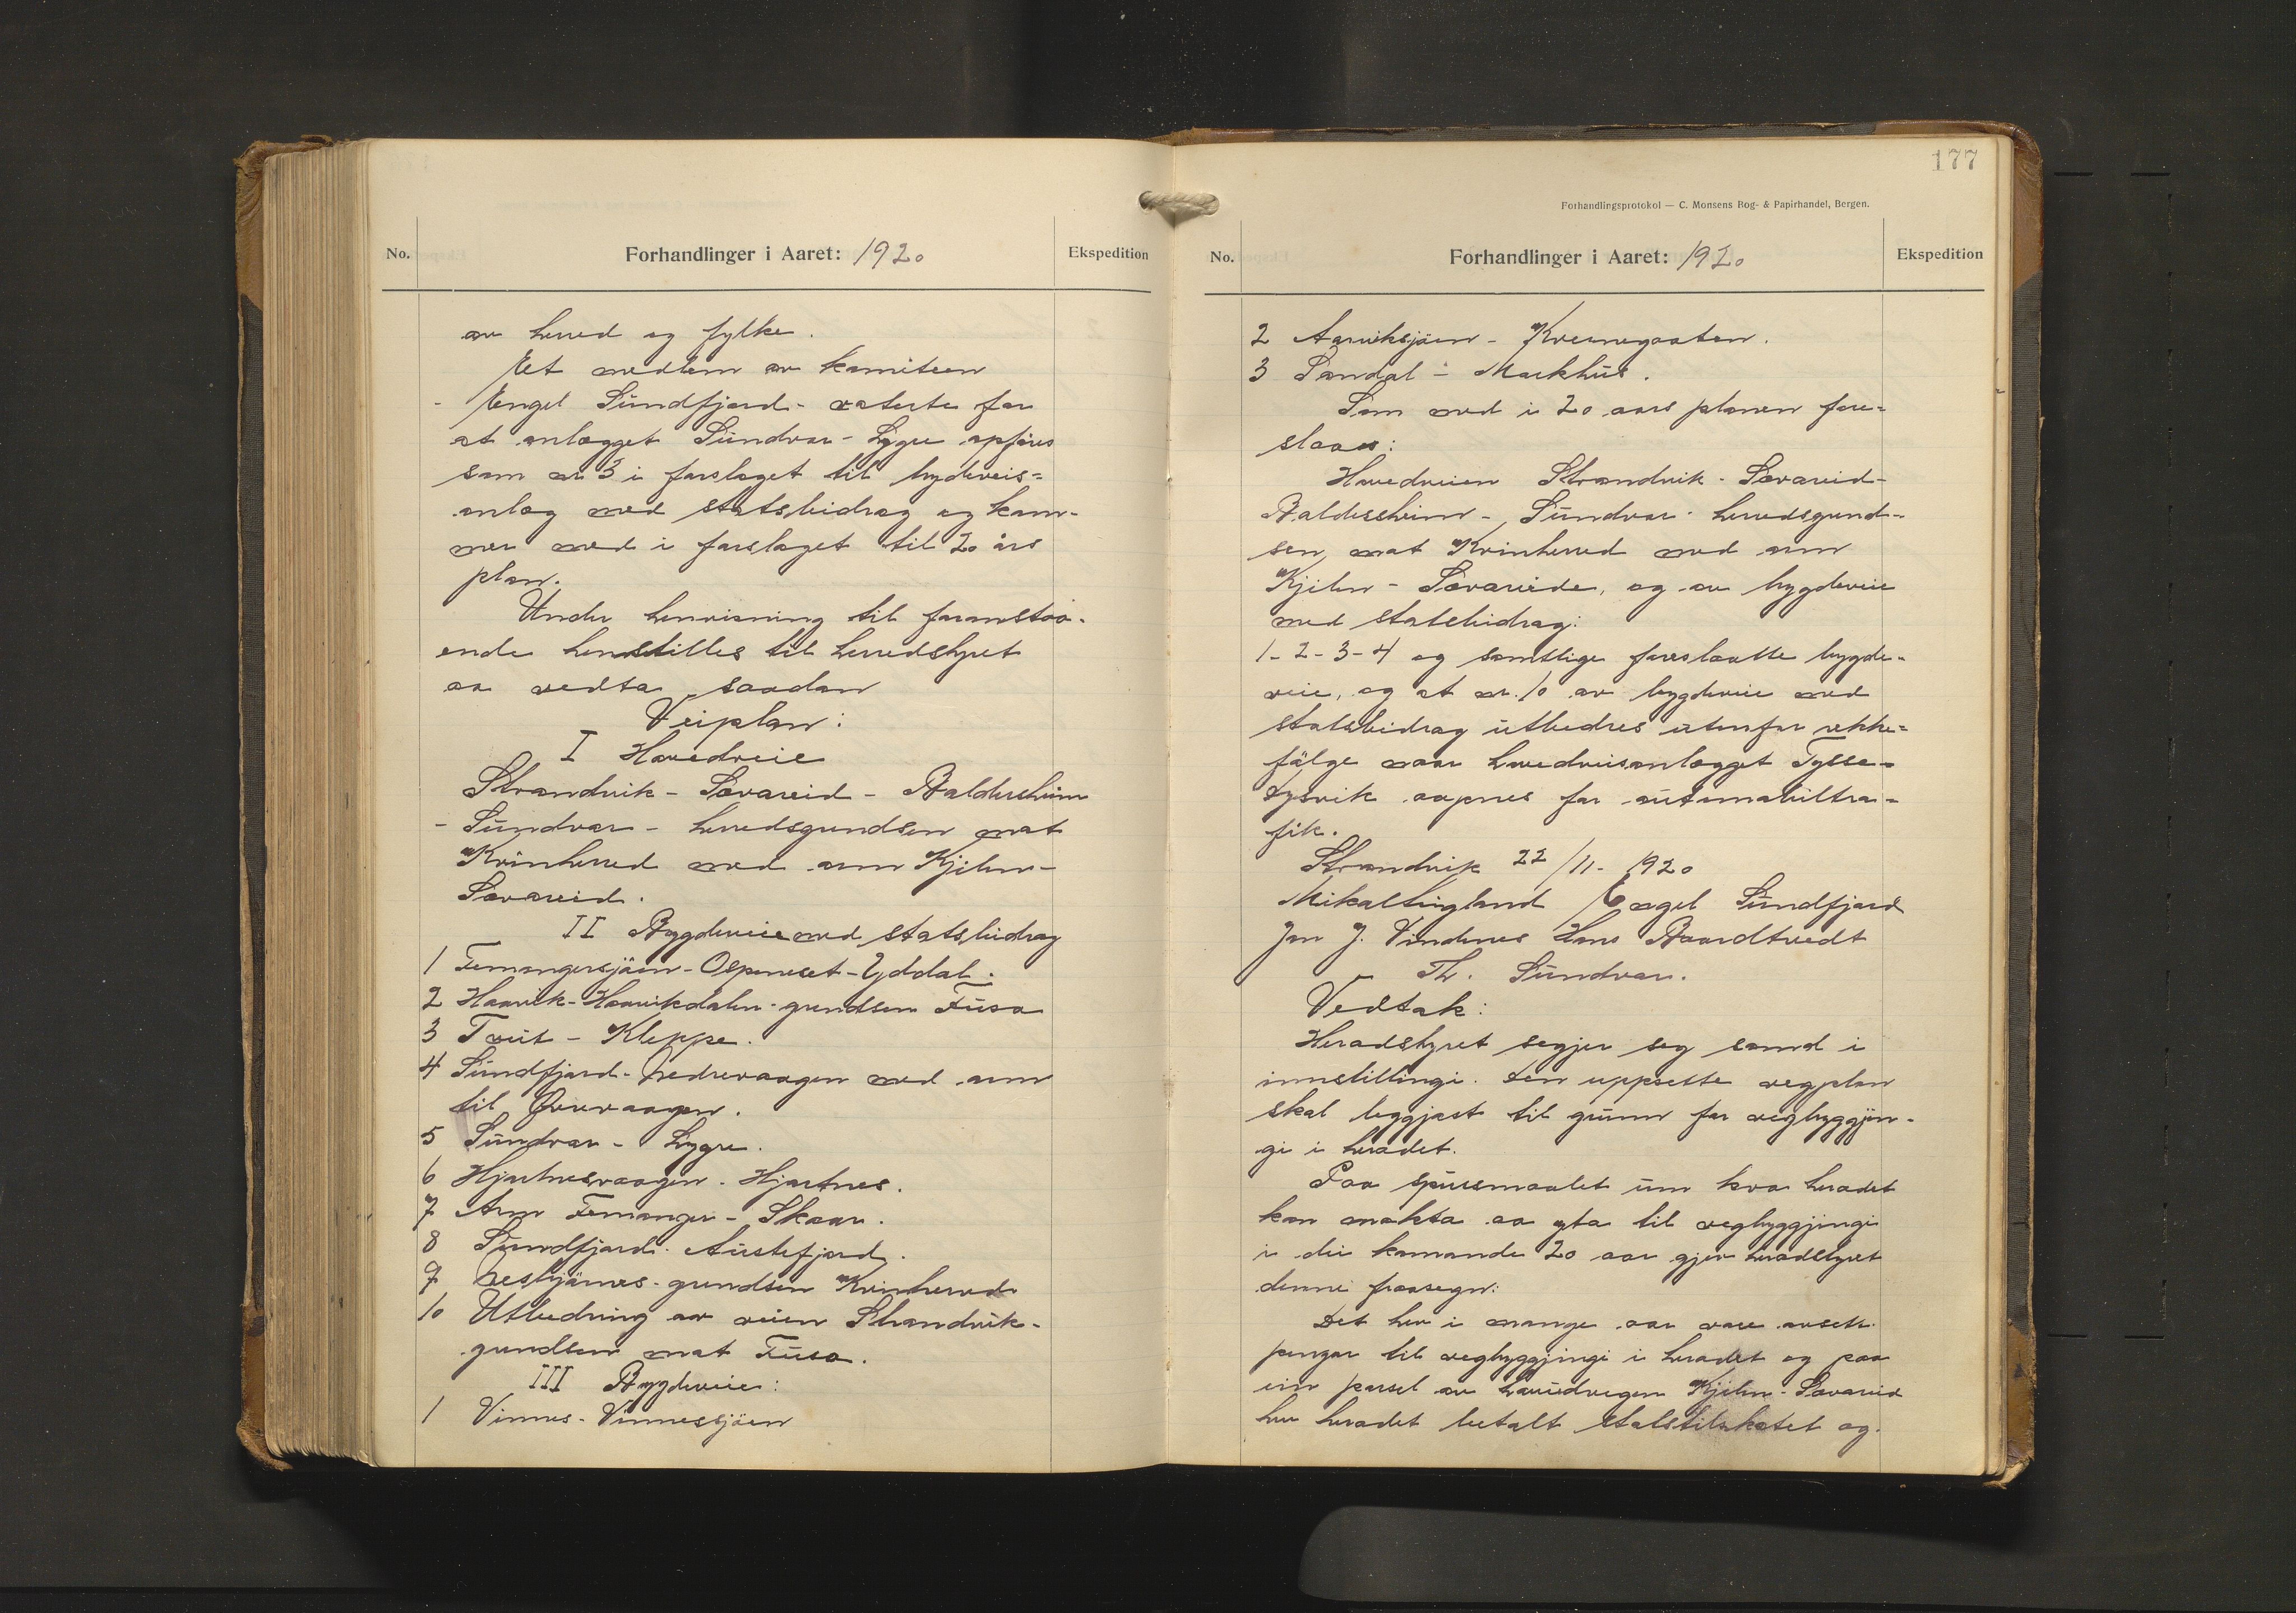 No.
Forhandlinger i Aaret: 1920
Ekspedition
av herred og fylke.
Et medlem av komiteen
- Engel Sündfjord - voterte for
at anlægget Sündvor - Lygre opføres
som nr 3 i forslaget til bygdeveis=
anlæg med statsbidrag og kom-
mer med i forslaget til 20 års
plan.
Under henvisning til foranstaa-
ende henstilles til herredstyret
aa vedta saadan
Veiplan:
I Hovedveie
Strandvik - Sævareid - Baldersheim
- Sündvor - herredsgrændsen mot
Kvinherred med arm Kjilen -
Sævareid.
II Bygdeveie med statsbidrag
1 Femangersjøen - Ospeneset - Yddal.
2 Haavik - Haavikdalen - grændsen Füsa
3 Tveit - Kleppe.
4 Sündfjord - Nedrevaagen med arm
til Øvrevaagen.
5 Sündvor - Lygre.
6 Hjartnesvaagen - Hjartnes.
7 Arm Femanger - Skaar.
8 Sündfjord - Austefjord.
9 Neshjørnes - grændsen Kvinherred
10 Utbedring av veien Strandvik -
grændsen mot Füsa.
III Bygdeveie:
1 Vinnes - Vinnessjøen
177
Forhandlingsprotokol — C. Monsens Bog- & Papirhandel, Bergen.
No.
Forhandlinger i Aaret: 1920
Ekspedition
2 Aarviksjøen -
3 Sandal - Markhüs.
Som med i 20 aars planen fore=
slaaes:
Hovedveien Strandvik - Sævareid -
Baldersheim - Sündvor - herredsgrænd-
sen mot Kvinherred med arm
Kjilen - Sævareide, og av bygdeveie
med statsbidrag:
1 - 2 - 3 - 4 og samtlige foreslaatte bygde-
veie, og at nr. 10 av bygdeveie med
statsbidrag ütbedres utenfor rekke=
følge naar hovedveisanlægget Tysse -
Eysvik aapnes for automobiltra-
fik.
Strandvik 22/11 - 1920
Mikal Lingland Engel Sündfjord
Jon J. Vindenes Hans Baardtvedt
Th. Sündvor.
Vedtak:
Heradstyret segjer seg samd i
innstillingi. Den uppsette vegplan
skal leggjast til grunn for vegbyggjin-
gi i heradet.
Paa spursmaalet um kva heradet
kan makta aa yta til vegbyggjingi
i dei komande 20 aar gjev heradstyret
denne fraasegn:
Det hev i mange aar vore avsett
pengar til vegbyggjingi i heradet og paa
ein parsel av hovudvegen Kjilen - Sævareid
hev heradet betalt statstilskotet og